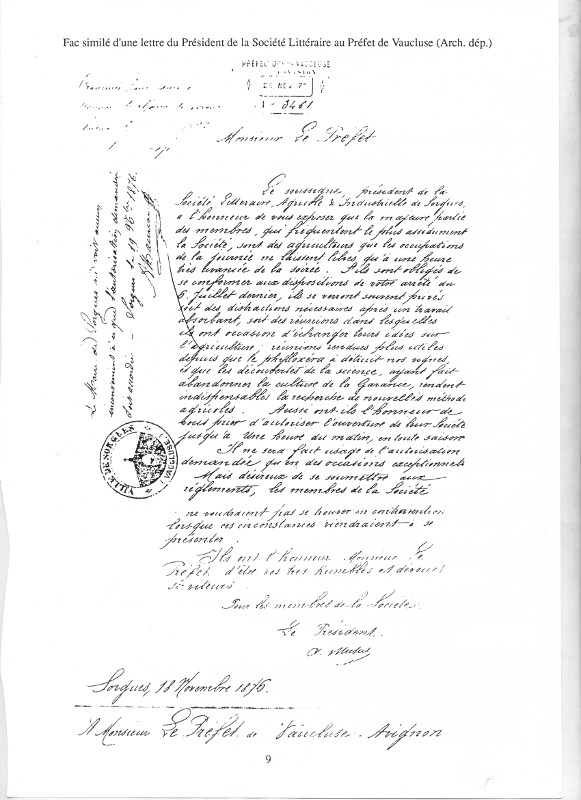 Fac similé d'une lettre du Président de la Société Littéraire au Préfet de Vaucluse (Arch. dép.)
PRÉFECTURE VAUCLUSE
NOV
N° 3461
Monsieur Le Préfet
Le soussigné, président de la
Société Litteraire, Agricole & Industrielle de Sorgues,
a l'honneur de vous exposer que la majeure partie
des membres, qui fréquentent le plus assidument
la Société, sont des agriculteurs que les occupations
de la journée ne laissent libres, qu'à une heure
très avancée de la soirée. S'ils sont obligés de
se conformer aux dispositions de votre arrêté du
6 Juillet dernier, ils se verront souvent privés
soit des distractions nécessaires après un travail
absorbant, soit des réunions dans lesquelles
ils ont occasion d'échanger leurs idées sur
l'agriculture, réunions rendues plus utiles
depuis que le phylloxéra a détruit nos vignes,
et que les découvertes de la science, ayant fait
abandonner la culture de la Garance, rendent
indispensables la recherche de nouvelles méthodes
agricoles. Aussi ont-ils l'honneur de
vous prier d'autoriser l'ouverture de leur Société
jusqu'à Une heure du matin, en toute saison
Il ne sera fait usage de l'autorisation
demandée qu'en des occasions exceptionnelles
Mais désireux de se soumettre aux
règlements, les membres de la Société
ne voudraient pas se trouver en contravention
lorsque ces circonstances viendraient à se
présenter.
Ils ont l'honneur Monsieur Le
Préfet d'être vos très humbles et dévoués
serviteurs
Pour les membres de la Société
Le Président.
Le Maire de Sorgues ne voit aucun
inconvénient à ce que l'autorisation demandée
soit accordée - Sorgues le 19 9bre 1876.
VILLE DE SORGUES (VAUCLUSE)
Sorgues, 18 Novembre 1876.
A Monsieur Le Préfet de Vaucluse. Avignon
9